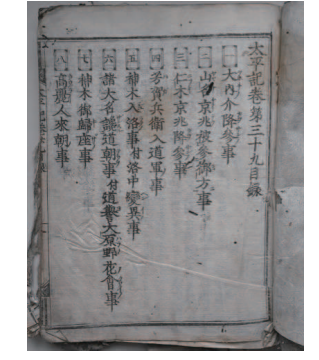 太平記卷第三十九目録
一 大内介降參事
二 山名京兆被參御方事
三 仁木京兆降參事
四 芳賀兵衛入道軍事
五 神木入洛事付洛中變異事
六 諸大名讒道朝事付道譽大原野花會事
七 神木御歸座事
八 高麗人來朝事